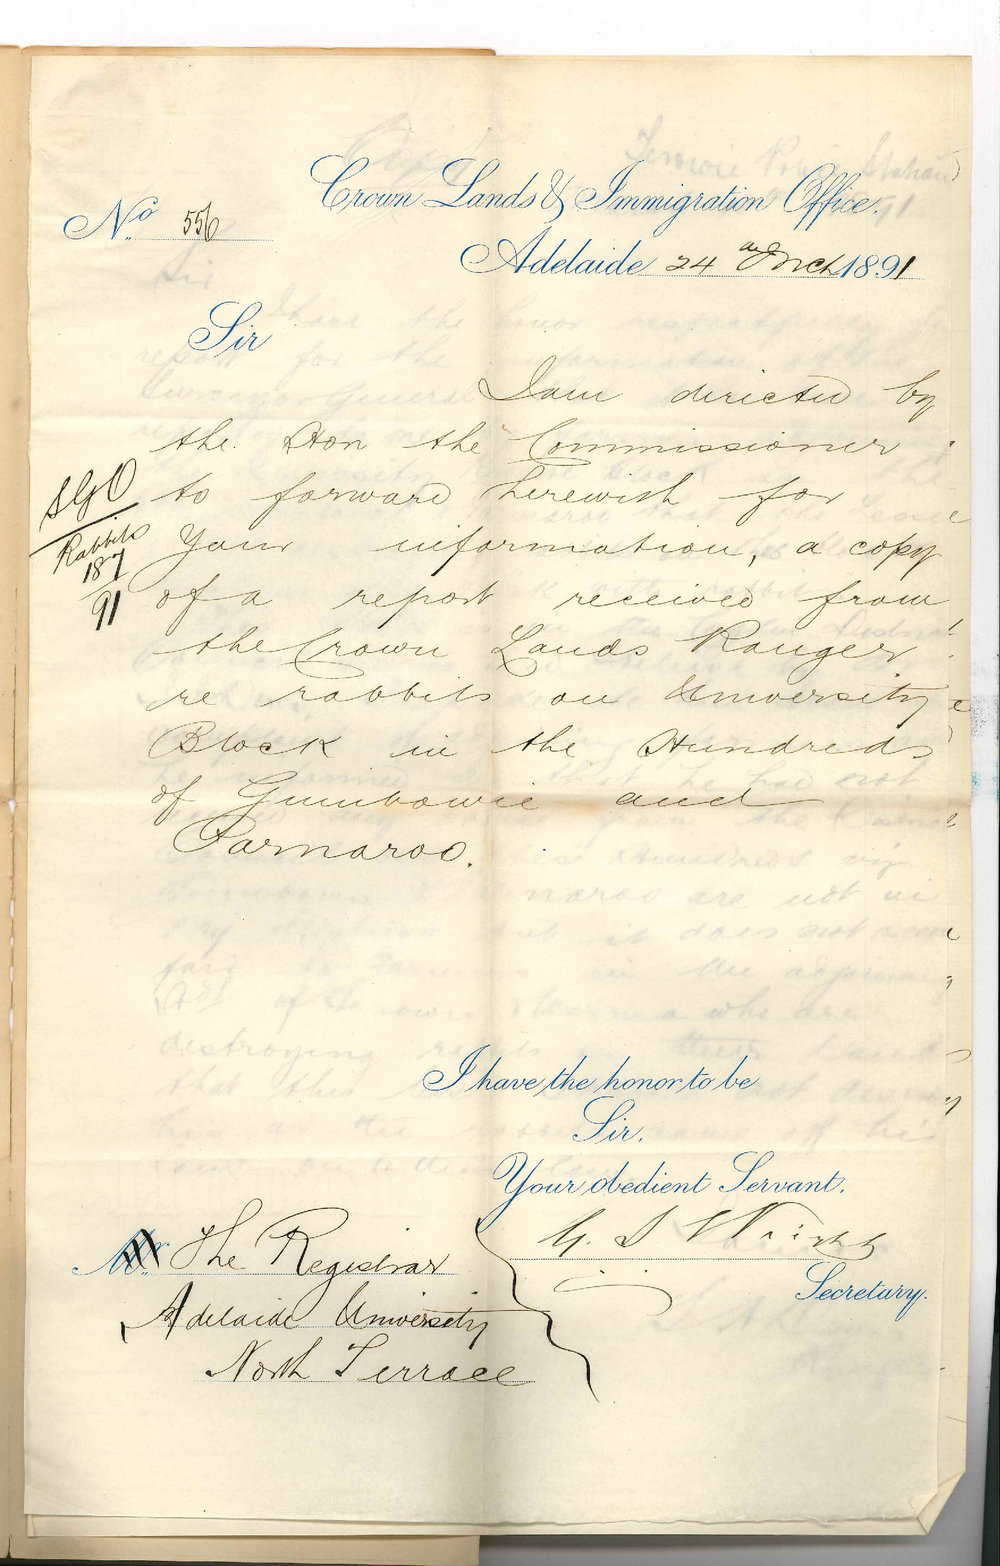 Crown Lands & Immigration Office.
No. 556
Adelaide 24 March 1891
Sir
I am directed by
the Hon the Commissioner
to forward herewith for
your information, a copy
of a report received from
the Crown Lands Ranger
re rabbits on University
Block in the Hundreds
of Gumbowie and
Parnaroo.
SGO
Rabbits
187
91
I have the honor to be
Sir.
Your obedient Servant.
G. S. Wright
Secretary.
The Registrar
Adelaide University
North Terrace